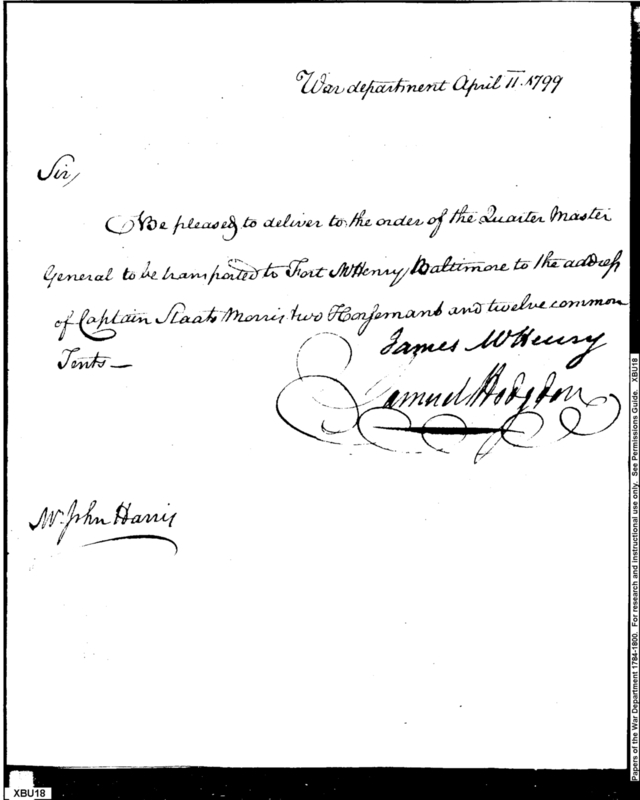 War department April 11. 1799
Sir,
Be pleased to deliver to the order of the Quarter Master
General to be transported to Fort McHenry Baltimore to the address
of Captain Staats Morris two Horsemans and twelve common
Tents —
James McHenry
Samuel Hodgdon
Mr. John Harris
Papers of the War Department 1784-1800. For research and instructional use only. See Permissions Guide. XBU18
XBU18